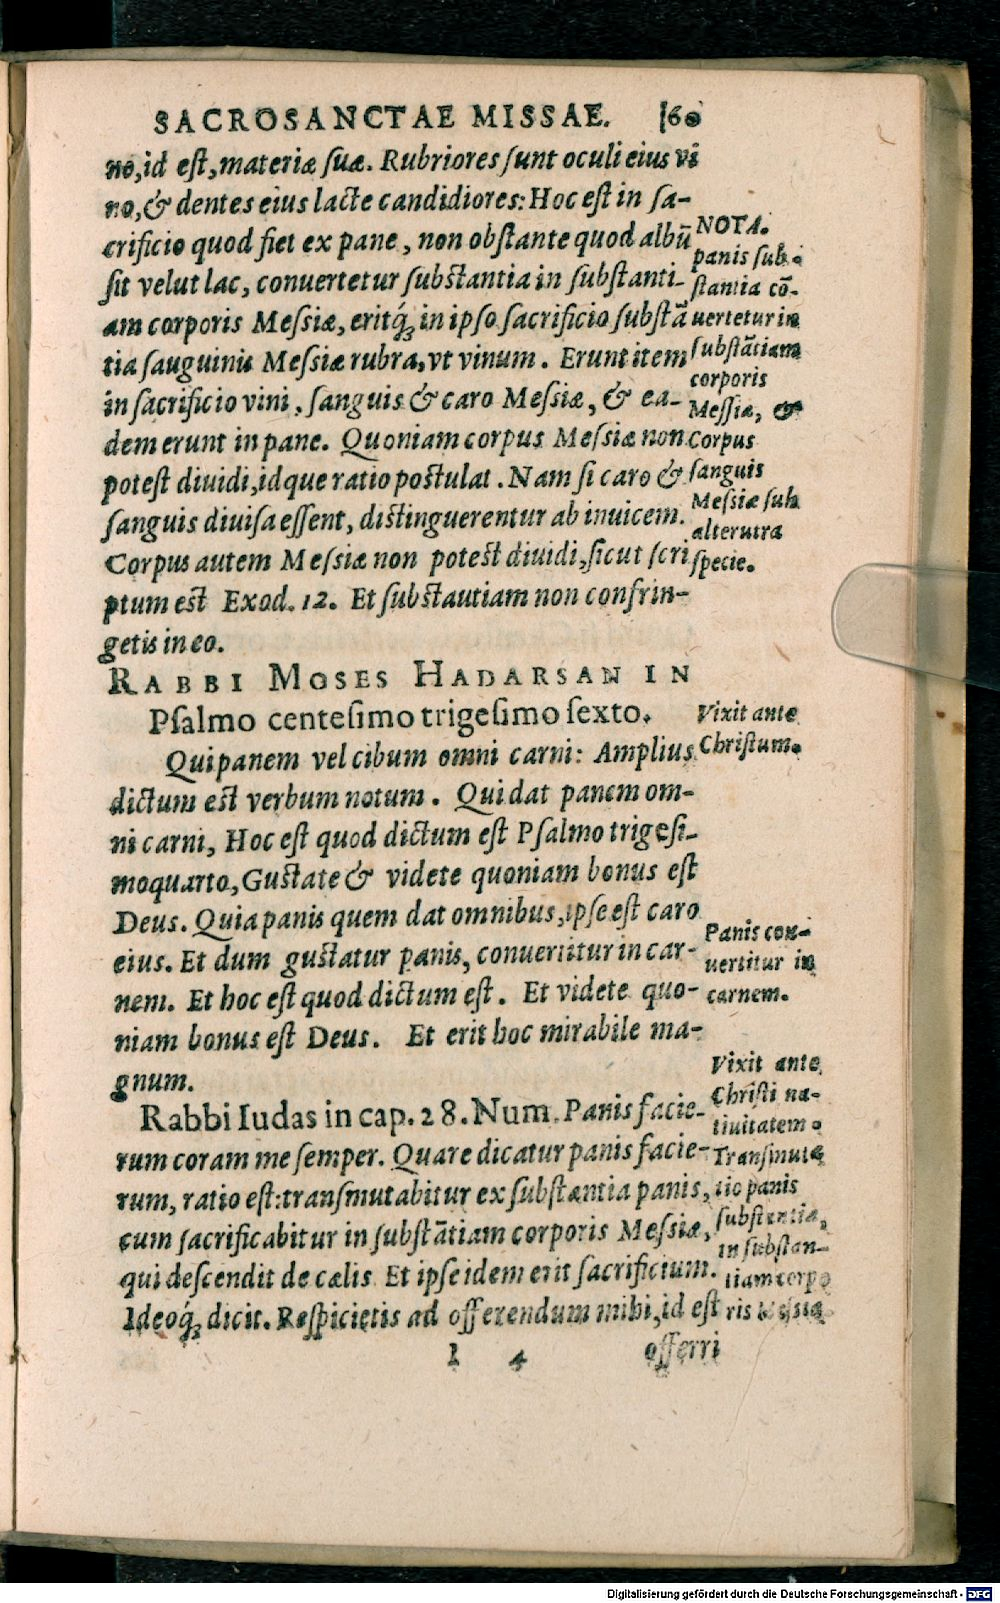 SACROSANCTAE MISSAE. 160
no, id eſt, materiæ ſuæ. Rubriores ſunt oculi eius vi
no, & dentes eius lacte candidiores: Hoc eſt in ſa-
crificio quod fiet ex pane, non obſtante quod albũ
ſit velut lac, conuertetur ſubſtantia in ſubſtanti-
am corporis Meſsiæ, eritq́ꝫ in ipſo ſacrificio ſubſtã
tia ſauguinis Meſsiæ rubra, vt vinum. Erunt item
in ſacrificio vini, ſanguis & caro Meſsiæ, & ea-
dem erunt in pane. Quoniam corpus Meſsiæ non
poteſt diuidi, idque ratio poſtulat. Nam ſi caro &
ſanguis diuiſa eſſent, diſtinguerentur ab inuicem.
Corpus autem Meſsiæ non poteſt diuidi, ſicut ſcri
ptum eſt Exod. 12. Et ſubſtautiam non confrin-
getis in eo.
NOTA.
panis ſub-
ſtantia cō-
uertetur in
ſubſtãtiam
corporis
Meſſiæ, &
Corpus
ſanguis
Meſsiæ ſub
alterutra
ſpecie.
RABBI MOSES HADARSAN IN
Pſalmo centeſimo trigeſimo ſexto.
Vixit ante
Chriſtum.
Qui panem vel cibum omni carni: Amplius
dictum eſt verbum notum. Qui dat panem om-
ni carni, Hoc eſt quod dictum eſt Pſalmo trigeſi-
moquarto, Guſtate & videte quoniam bonus eſt
Deus. Quia panis quem dat omnibus, ipſe eſt caro
eius. Et dum guſtatur panis, conuertitur in car-
nem. Et hoc eſt quod dictum eſt. Et videte quo-
niam bonus eſt Deus. Et erit hoc mirabile ma-
gnum.
Panis con-
uertitur in
carnem.
Rabbi Iudas in cap. 28. Num. Panis facie-
rum coram me ſemper. Quare dicatur panis facie-
rum, ratio eſt: tranſmutabitur ex ſubſtantia panis,
cum ſacrificabitur in ſubſtãtiam corporis Meſsiæ,
qui deſcendit de cælis. Et ipſe idem erit ſacrificium.
Ideoq́ꝫ dicit. Reſpicietis ad offerendum mihi, id eſt
Vixit ante
Chriſti na-
tiuitatem.
Tranſmuta
tio panis
ſubſtantia,
in ſubſtan-
tiam corpo
ris Meſsiæ
l 4 offerri
Digitalisierung gefördert durch die Deutsche Forschungsgemeinschaft - DFG